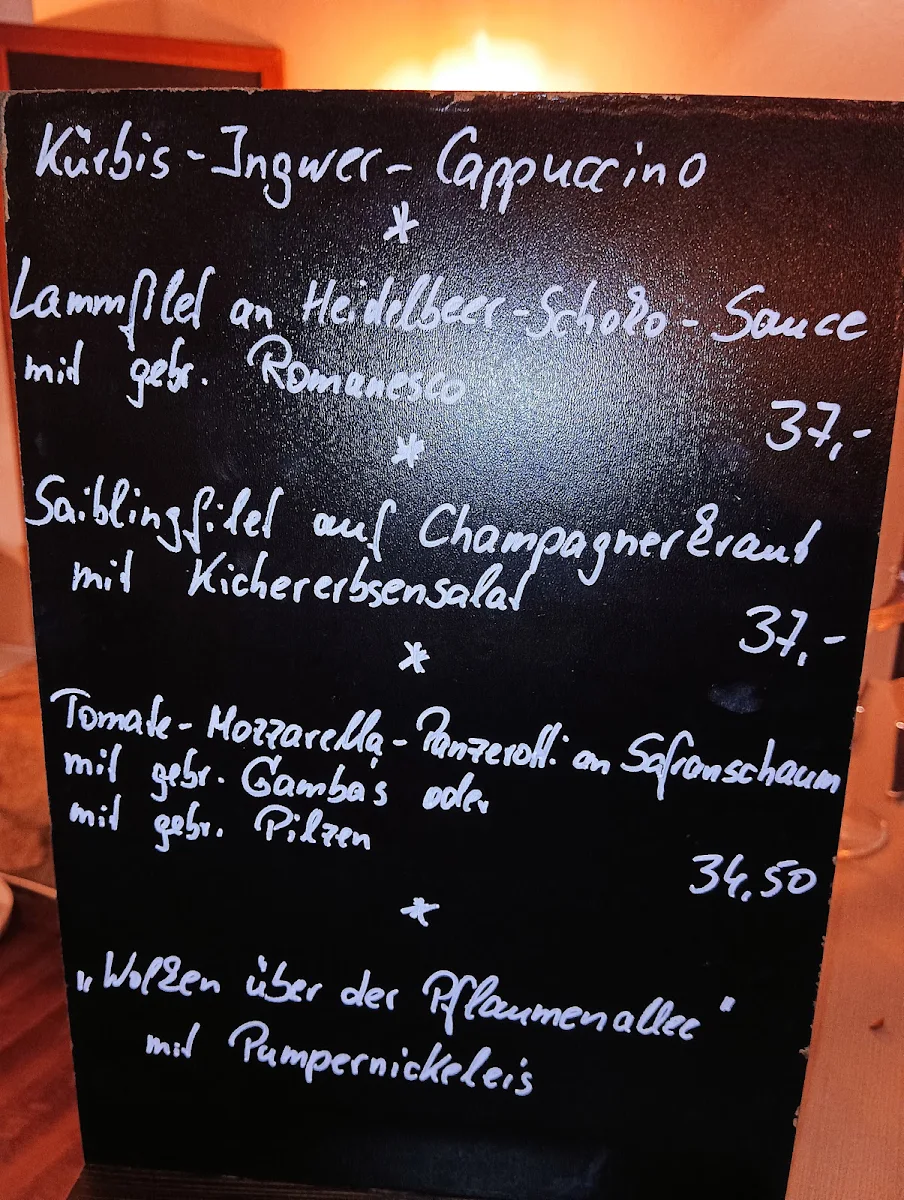 Kürbis-Ingwer-Cappuccino
*
Lammfilet an Heidelbeer-Schoko-Sauce
mit gebr. Romanesco
37,-
*
Saiblingfilet auf Champagnerkraut
mit Kichererbsensalat
37,-
*
Tomate-Mozzarella-Panzerotti an Safranschaum
mit gebr. Gamba's oder
mit gebr. Pilzen
34,50
*
„Wolken über der Pflaumenallee"
mit Pumpernickeleis